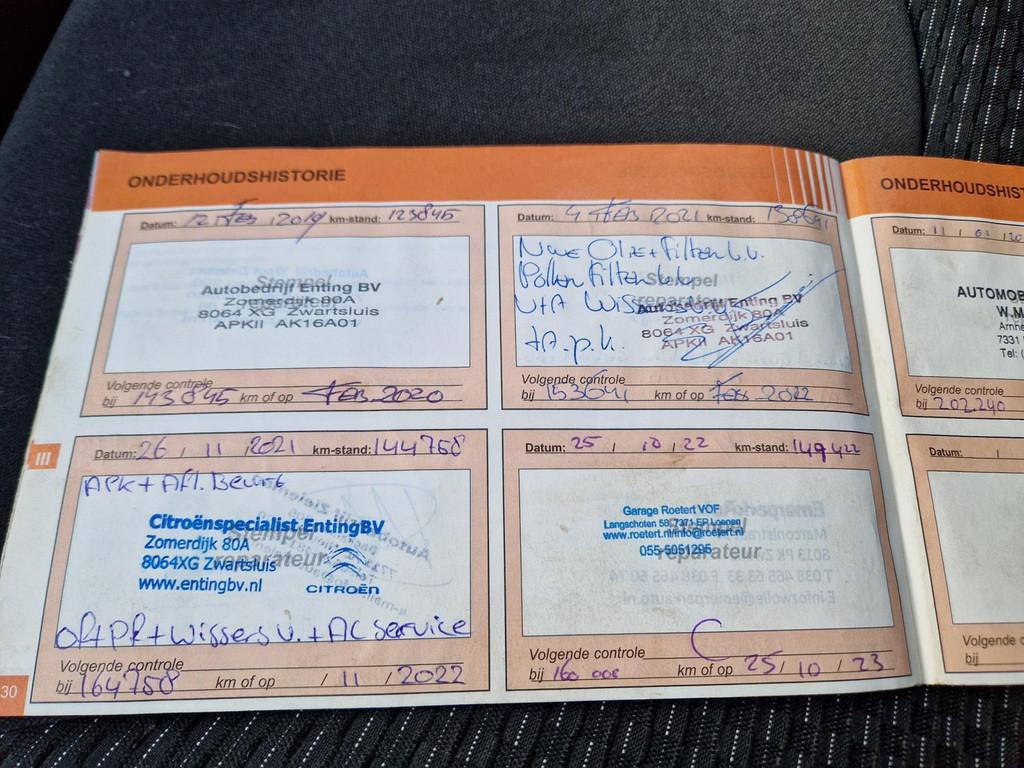 ONDERHOUDSHISTORIE
Datum: 12 FEB 2019 km-stand: 123845
Stempel
Autobedrijf Enting BV
Zomerdijk 80A
8064 XG Zwartsluis
APKII AK16A01
Volgende controle
bij 143845 km of op FEB 2020
Datum: 4 FEB 2021 km-stand:
Stempel
reparateur
Autobedrijf Enting BV
Zomerdijk 80A
8064 XG Zwartsluis
APKII AK16A01
+A.p.k.
Volgende controle
bij km of op FEB 2022
III
Datum: 26 / 11 / 2021 km-stand: 144758
APK + Afl. Beurt
Stempel
reparateur
Citroënspecialist Enting BV
Zomerdijk 80A
8064XG Zwartsluis
www.entingbv.nl
CITROËN
OF+PF+Wissers v. + AC service
Volgende controle
bij 164758 km of op / 11 / 2022
Datum: 25 / 10 / 22 km-stand: 149422
Stempel
reparateur
Garage Roetert VOF
Langschoten 58, 7371 EP Loenen
www.roetert.nl/info@roetert.nl
055-5051295
Volgende controle
bij 160 000 km of op 25 / 10 / 23
30
ONDERHOUDSHIST
Datum: 11 / 01 / 20
AUTOMOB
W.M
Arnhe
7331
Tel: (
Volgende controle
bij 202.240
Datum: /
Volgende c
bij